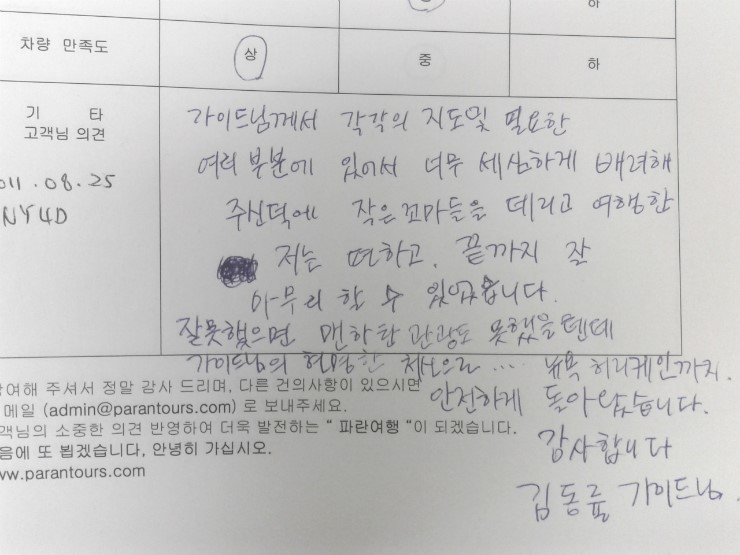 하
차량 만족도 상 중 하
기 타
고객님 의견
011.08.25
NY4D
가이드님께서 각각의 지도및 필요한
여러 부분에 있어서 너무 세심하게 배려해
주신덕에 작은 꼬마들을 데리고 여행한
저는 편하고, 끝까지 잘
마무리 할 수 있었습니다.
잘못했으면 맨하탄 관광도 못했을텐데
가이드님의 현명한 ... 뉴욕 허리케인까지.
안전하게 돌아왔습니다.
감사합니다
김동률 가이드님.
참여해 주셔서 정말 감사 드리며, 다른 건의사항이 있으시면
메일 (admin@parantours.com) 로 보내주세요.
객님의 소중한 의견 반영하여 더욱 발전하는 " 파란여행 "이 되겠습니다.
음에 또 뵙겠습니다, 안녕히 가십시오.
ww.parantours.com